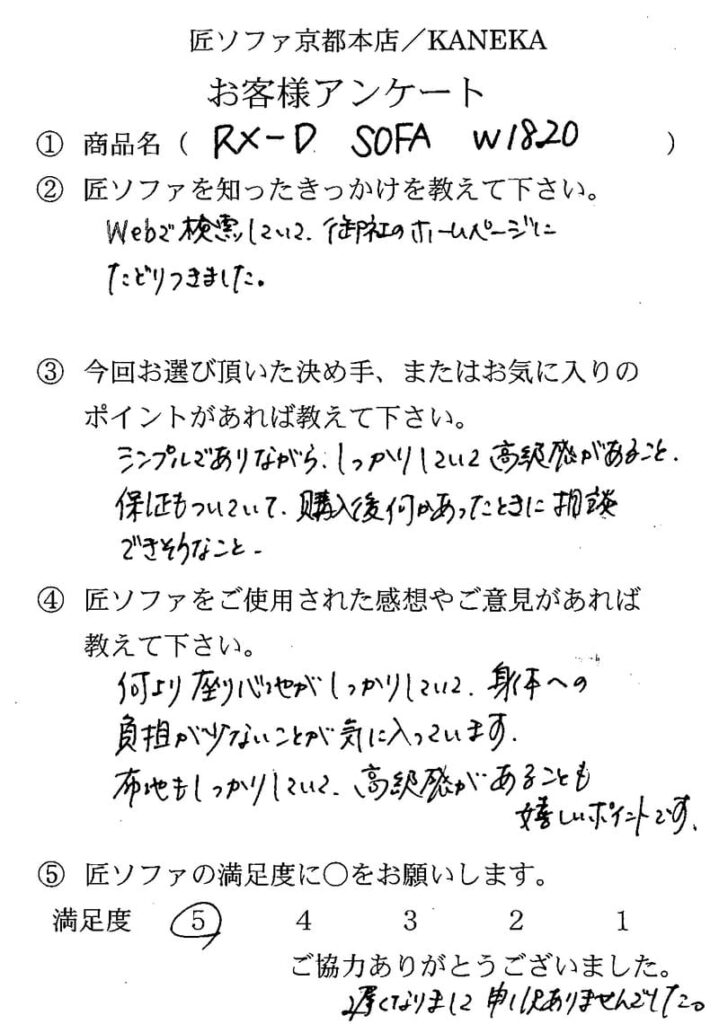 匠ソファ京都本店／KANEKA
お客様アンケート
① 商品名（ RX-D SOFA W1820 ）
② 匠ソファを知ったきっかけを教えて下さい。
Webで検索していて、御社のホームページに
たどりつきました。
③ 今回お選び頂いた決め手、またはお気に入りの
ポイントがあれば教えて下さい。
シンプルでありながら、しっかりしていて高級感があること、
保証もついていて、購入後何かあったときに相談
できそうなこと、
④ 匠ソファをご使用された感想やご意見があれば
教えて下さい。
何より座り心地がしっかりしていて、身体への
負担が少ないことが気に入っています。
布地もしっかりしていて、高級感があることも
嬉しいポイントです。
⑤ 匠ソファの満足度に○をお願いします。
満足度 5 4 3 2 1
ご協力ありがとうございました。
遅くなりまして申し訳ありませんでした。